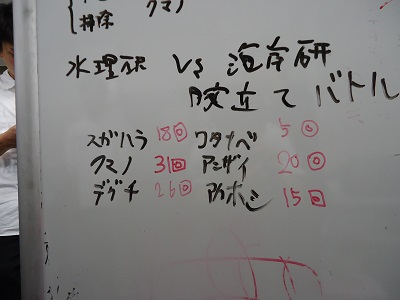 クマノ
掃除
水理研 VS 海岸研
腕立てバトル
スガハラ 18回 ワタナベ 5回
クマノ 31回 アンザイ 20回
デグチ 26回 アカホシ 15回